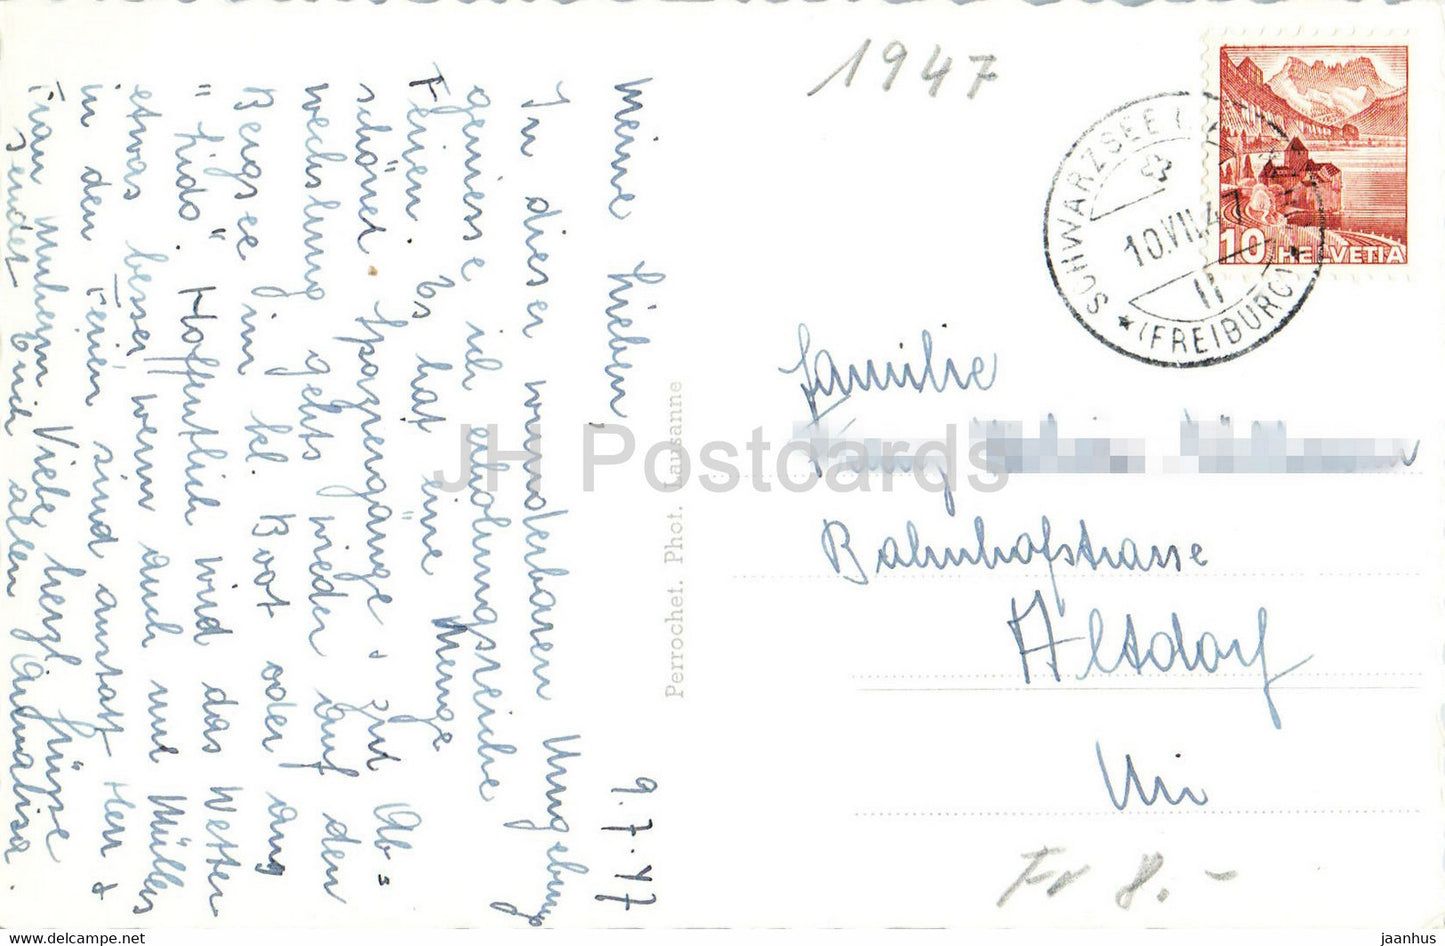 1947
SCHWARZSEE
10.VII.47
II
★ (FREIBURG) ★
10 HELVETIA
9.7.47
Meine Lieben,
In dieser wunderbaren Umgebung
geniesse ich erholungsreiche
Ferien. Es hat eine Menge
schöner Spaziergänge & zur Ab=
wechslung gehts wieder auf den
Bergsee im kl. Boot oder ans
"Lido". Hoffentlich wird das Wetter
etwas besser wenn auch mit Müllers
in den Ferien sind anstatt Herr &
Frau Muheim. Viele herzl. Grüsse
sendet Euch allen Annalisa.
Perrochet. Phot. Lausanne
Familie
Bahnhofstrasse
Altdorf
Uri
Fr 8.-
JH Postcards
https://www.delcampe.net
jaanhus